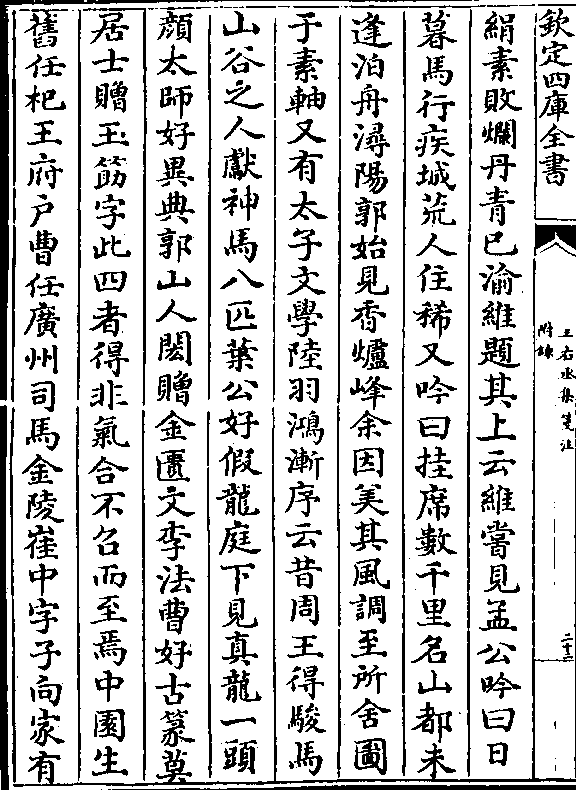 欽定四庫全書
王右丞集箋注
附錄
二十三
絹素敗爛丹青已渝維題其上云維嘗見孟公吟曰日
暮馬行疾城荒人住稀又吟曰挂席數千里名山都未
逢泊舟潯陽郭始見香爐峰余因美其風調至所舍圖
于素軸又有太子文學陸羽鴻漸序云昔周王得駿馬
山谷之人獻神馬八匹葉公好假龍庭下見真龍一頭
顔太師好異典郭山人閎贈金匱文李法曹好古篆莫
居士贈玉筯字此四者得非氣合不召而至焉中園生
舊任杞王府户曹任廣州司馬金陵崔中字子向家有